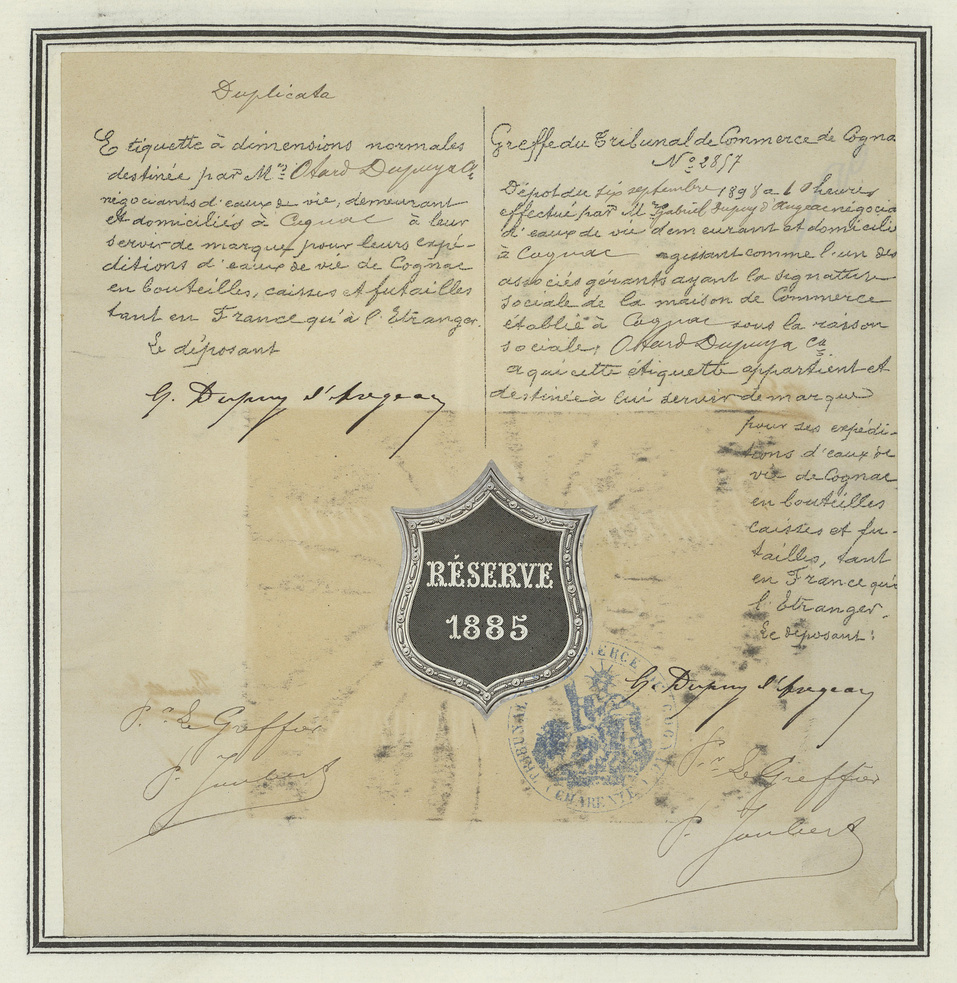 Duplicata
Etiquette à dimensions normales
destinée par M.rs Otard Dupuy & Ce
négociants d'eaux de vie, demeurant
et domiciliés à Cognac à leur
servir de marque pour leurs expé-
ditions d'eaux de vie de Cognac
en bouteilles, caisses et futailles
tant en France qu'à l'Etranger.
Le déposant
G. Dupuy d'Angeac
Greffe du Tribunal de Commerce de Cogna
No 2857
Dépôt du six septembre 1893 à 10 heures
effectué par Mr Gabriel Dupuy d'Angeac négocia
d'eaux de vie demeurant et domicilié
à Cognac agissant comme l'un des
associés gérants ayant la signature
sociale de la maison de Commerce
établie à Cognac sous la raison
sociale: Otard Dupuy & Ce
a qui cette étiquette appartient et
destinée à lui servir de marque
pour ses expédi-
tions d'eaux de
vie de Cognac
en bouteilles
caisses et fu-
tailles, tant
en France qu'à
l'Etranger.
Le déposant:
G. Dupuy d'Angeac
RÉSERVE
1885
Pr Le Greffier
P. Joubert
Pr Le Greffier
P. Joubert
TRIBUNAL
MERCE
COGNAC
(CHARENTE)